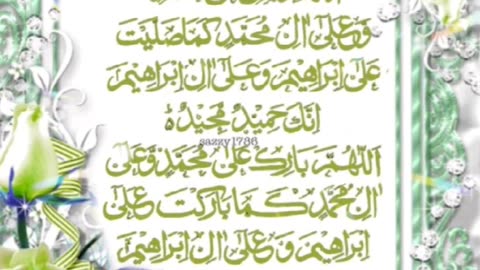 وَعَلٰٓى اٰلِ مُحَمَّدٍ كَمَا صَلَّيْتَ
عَلٰٓى اِبْرَاهِيْمَ وَعَلٰٓى اٰلِ اِبْرَاهِيْمَ
اِنَّكَ حَمِيْدٌ مَّجِيْدٌ ه
sazzy1786
اَللّٰهُمَّ بَارِكْ عَلٰى مُحَمَّدٍ وَّعَلٰٓى
اٰلِ مُحَمَّدٍ كَمَا بَارَكْتَ عَلٰٓى
اِبْرَاهِيْمَ وَعَلٰٓى اٰلِ اِبْرَاهِيْمَ